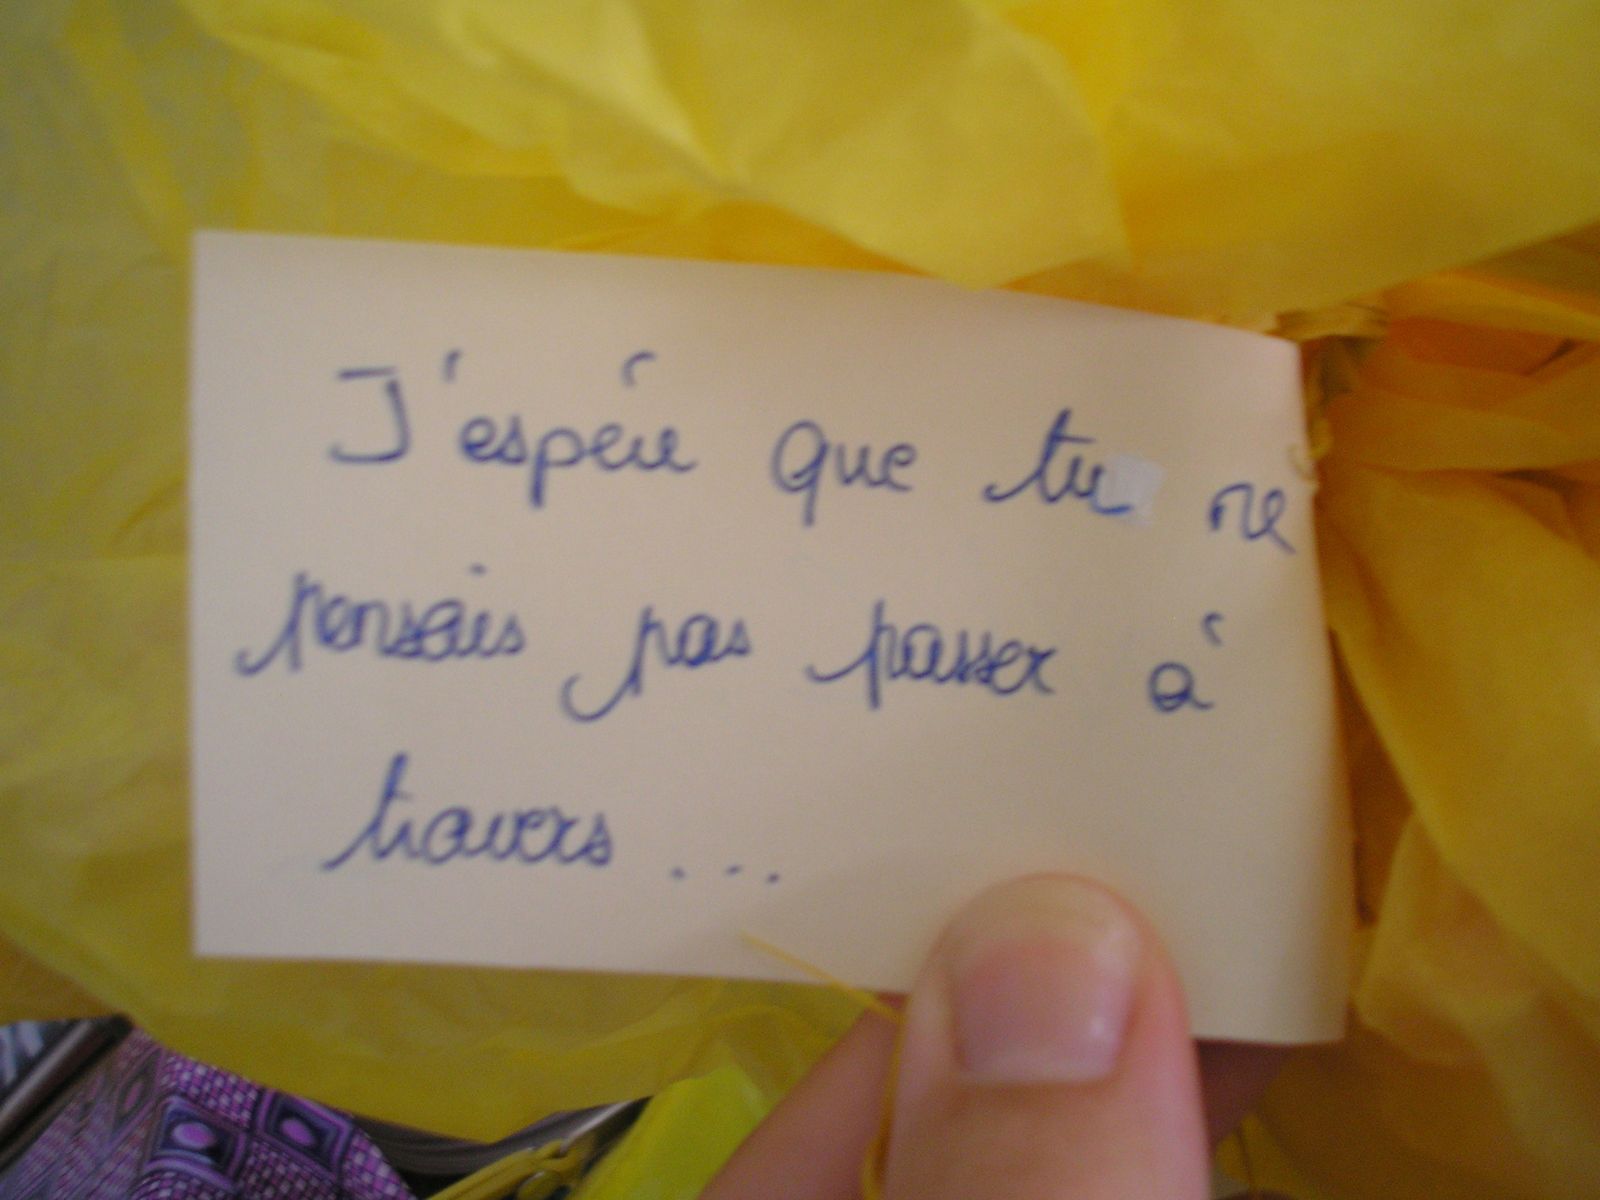 J'espère que tu ne
pensais pas passer à
travers ...